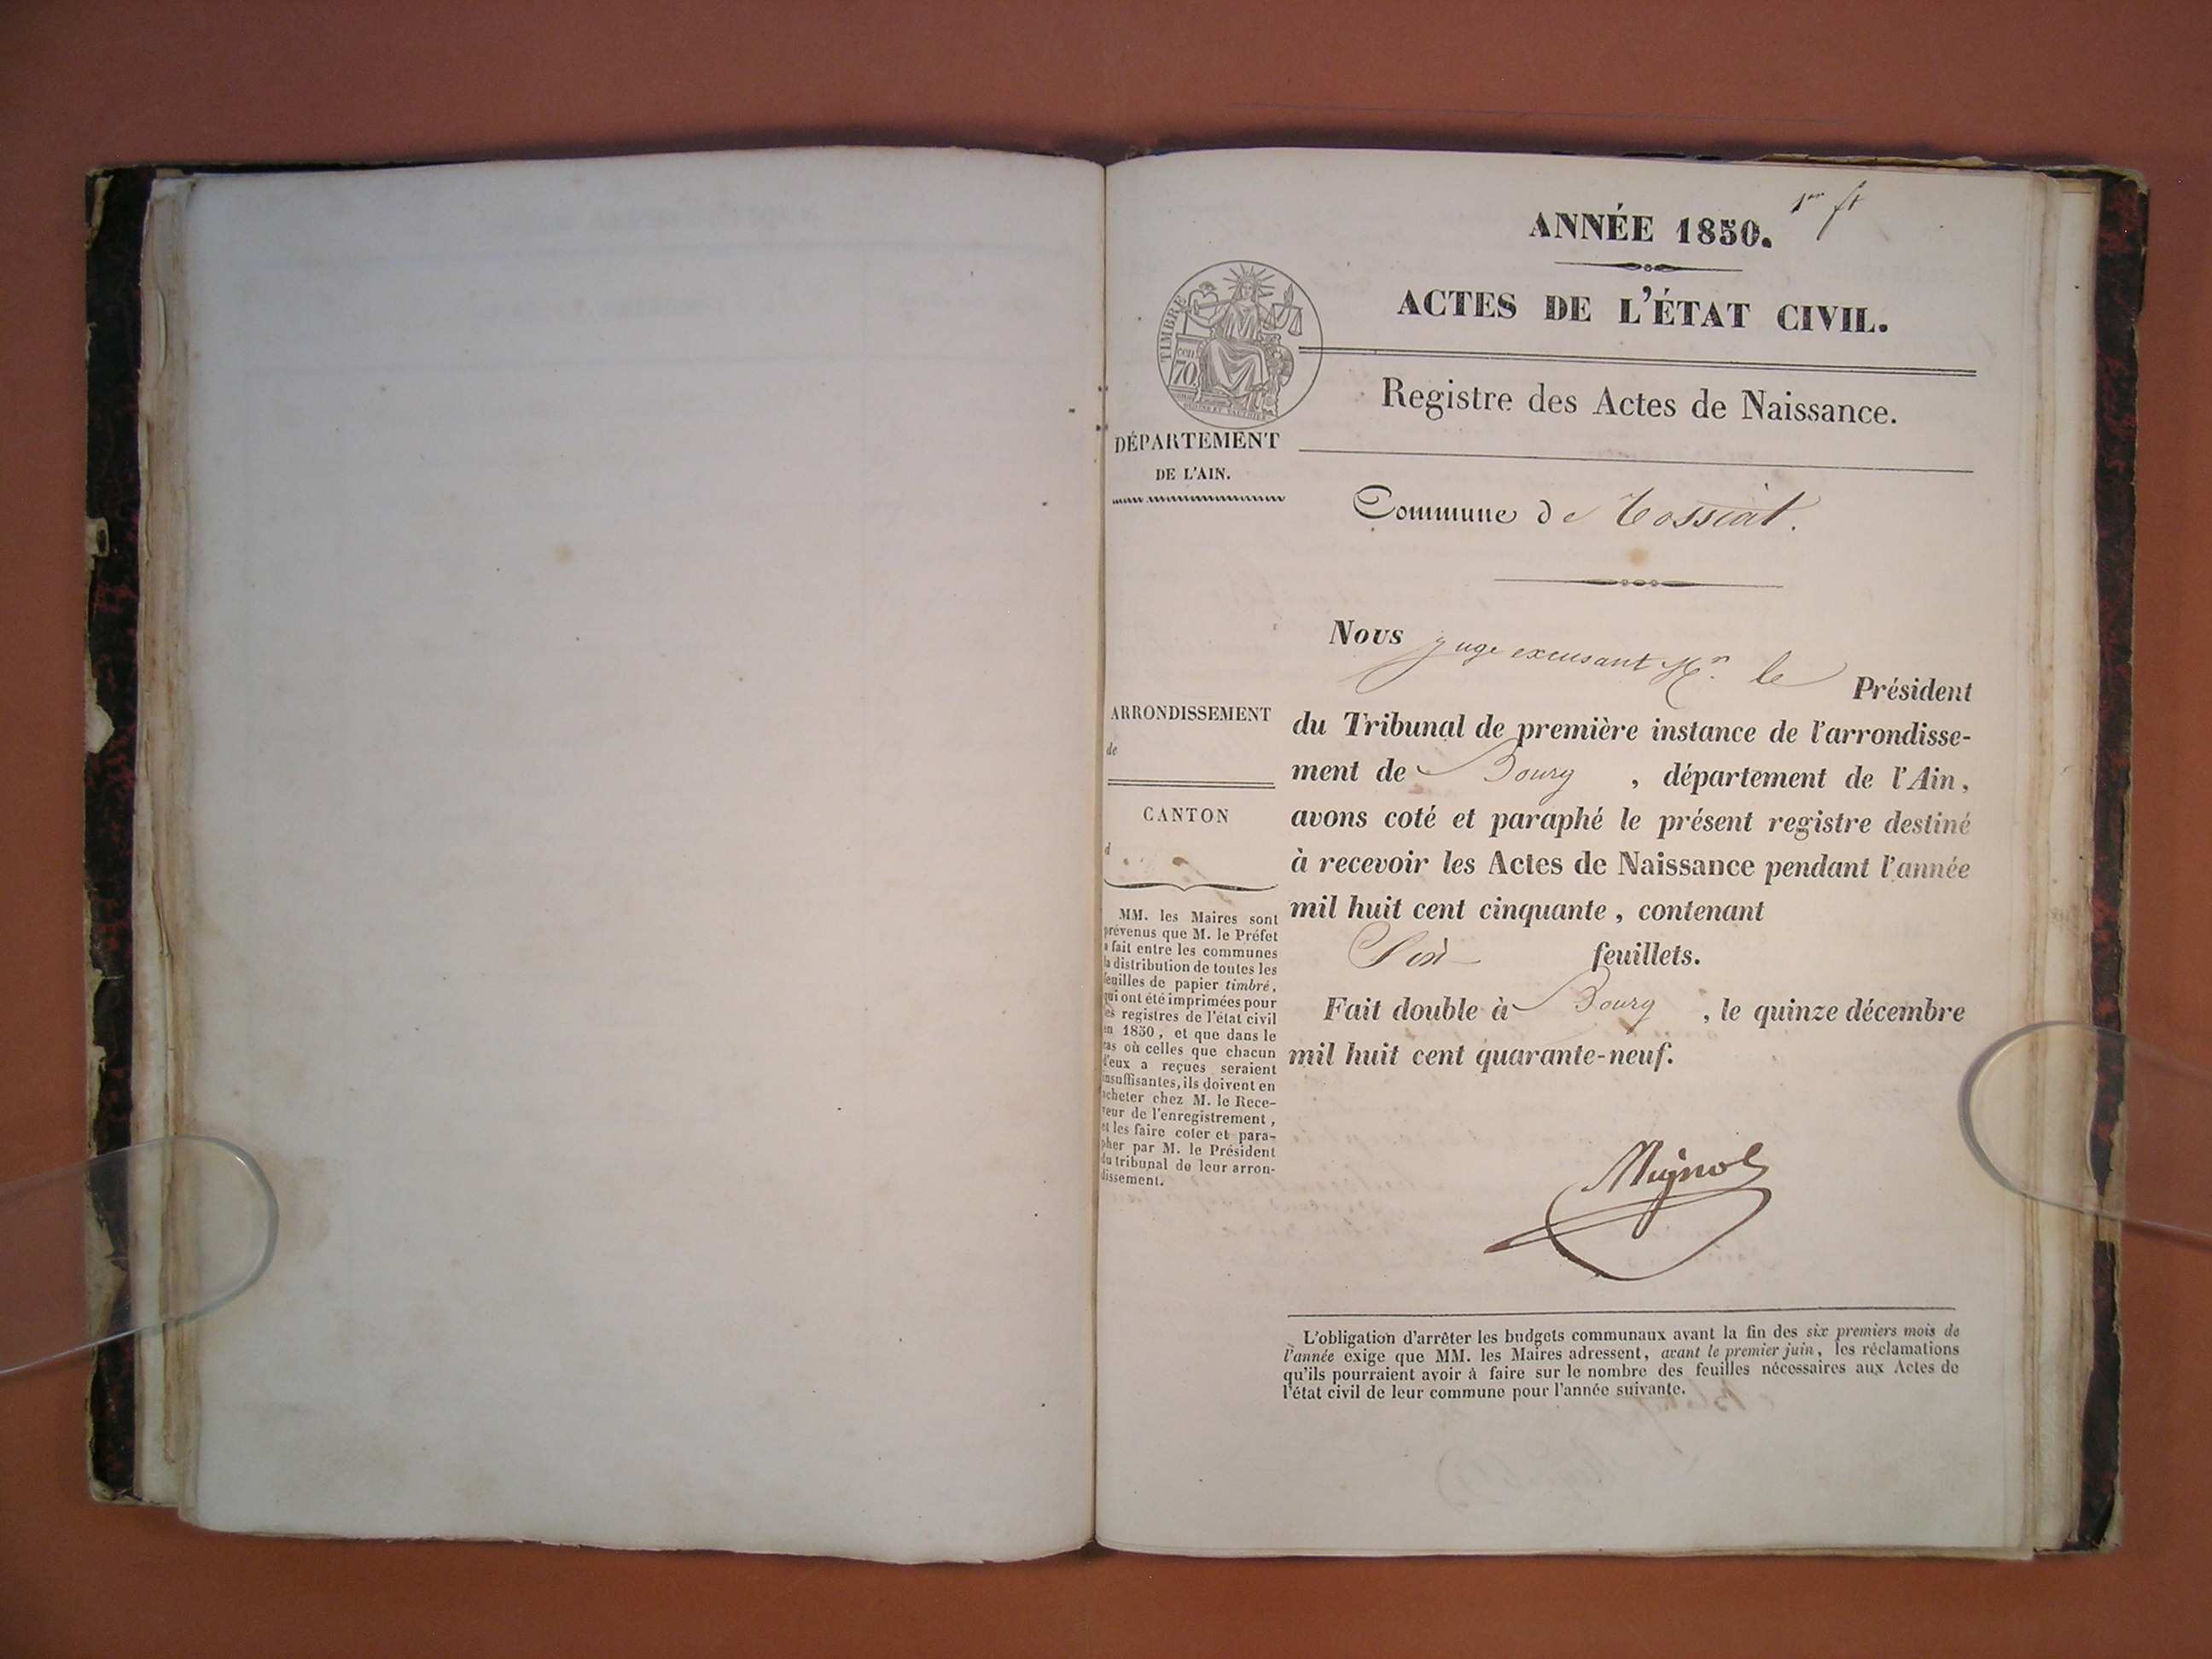 1er ft
ANNÉE 1850.
ACTES DE L'ÉTAT CIVIL.
TIMBRE
cen
70.
Registre des Actes de Naissance.
DÉPARTEMENT
DE L'AIN.
Commune de Tossiat.
Nous juge excusant Mr. le Président
ARRONDISSEMENT
de
CANTON
d
du Tribunal de première instance de l'arrondisse-
ment de Bourg, département de l'Ain,
avons coté et paraphé le présent registre destiné
à recevoir les Actes de Naissance pendant l'année
mil huit cent cinquante, contenant
Six feuillets.
Fait double à Bourg, le quinze décembre
mil huit cent quarante-neuf.
MM. les Maires sont
prévenus que M. le Préfet
a fait entre les communes
la distribution de toutes les
feuilles de papier timbré,
qui ont été imprimées pour
les registres de l'état civil
en 1850, et que dans le
cas où celles que chacun
d'eux a reçues seraient
insuffisantes, ils doivent en
acheter chez M. le Rece-
veur de l'enregistrement,
et les faire coter et para-
pher par M. le Président
du tribunal de leur arron-
dissement.
L'obligation d'arrêter les budgets communaux avant la fin des six premiers mois de
l'année exige que MM. les Maires adressent, avant le premier juin, les réclamations
qu'ils pourraient avoir à faire sur le nombre des feuilles nécessaires aux Actes de
l'état civil de leur commune pour l'année suivante.